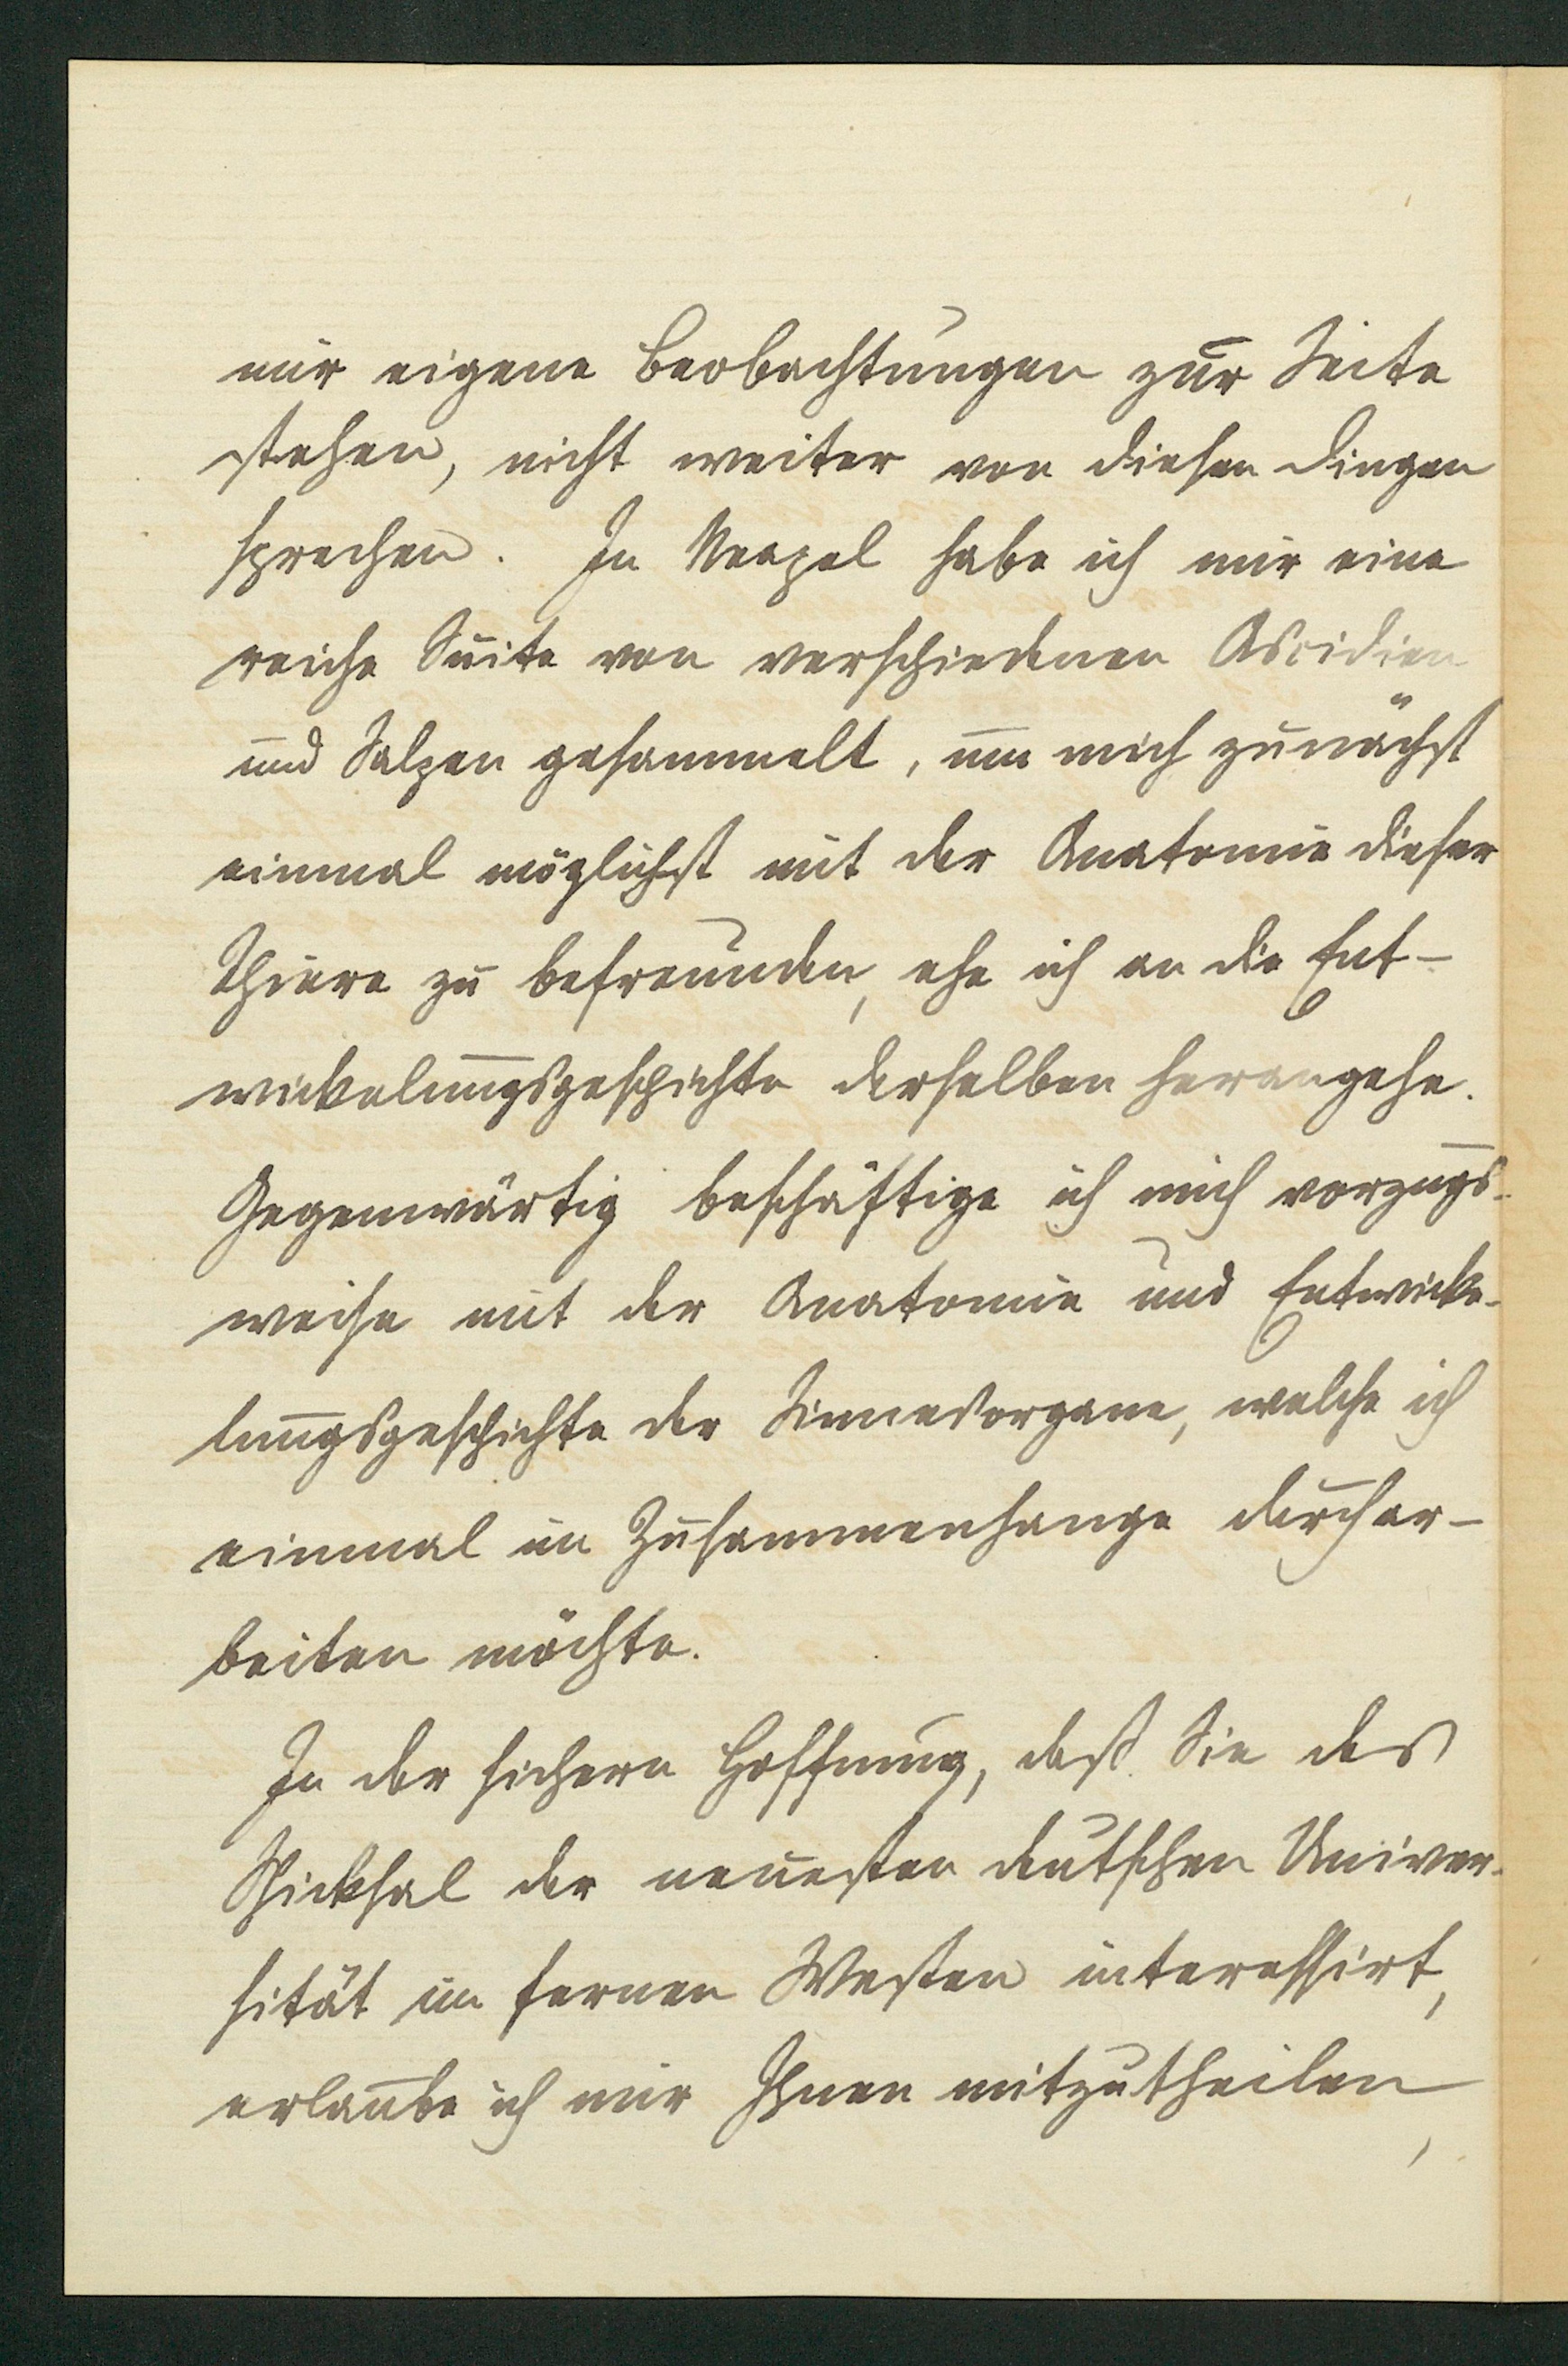 mir eigene Beobachtungen zur Seite
stehen, nicht weiter von diesen Dingen
sprechen. In Neapel habe ich mir eine
reiche Suite von verschiedenen Ascidien
und Salpen gesammelt, um mich zunächst
einmal möglichst mit der Anatomie dieser
Thiere zu befreunden, ehe ich an die Ent-
wickelungsgeschichte derselben herangehe.
Gegenwärtig beschäftige ich mich vorzugs-
weise mit der Anatomie und Entwicke-
lungsgeschichte der Sinnesorgane, welche ich
einmal im Zusammenhange durchar-
beiten möchte.
In der sichern Hoffnung, daß Sie das
Schicksal der neuesten deutschen Univer-
sität im fernen Westen interessirt,
erlaube ich mir Ihnen mitzutheilen,